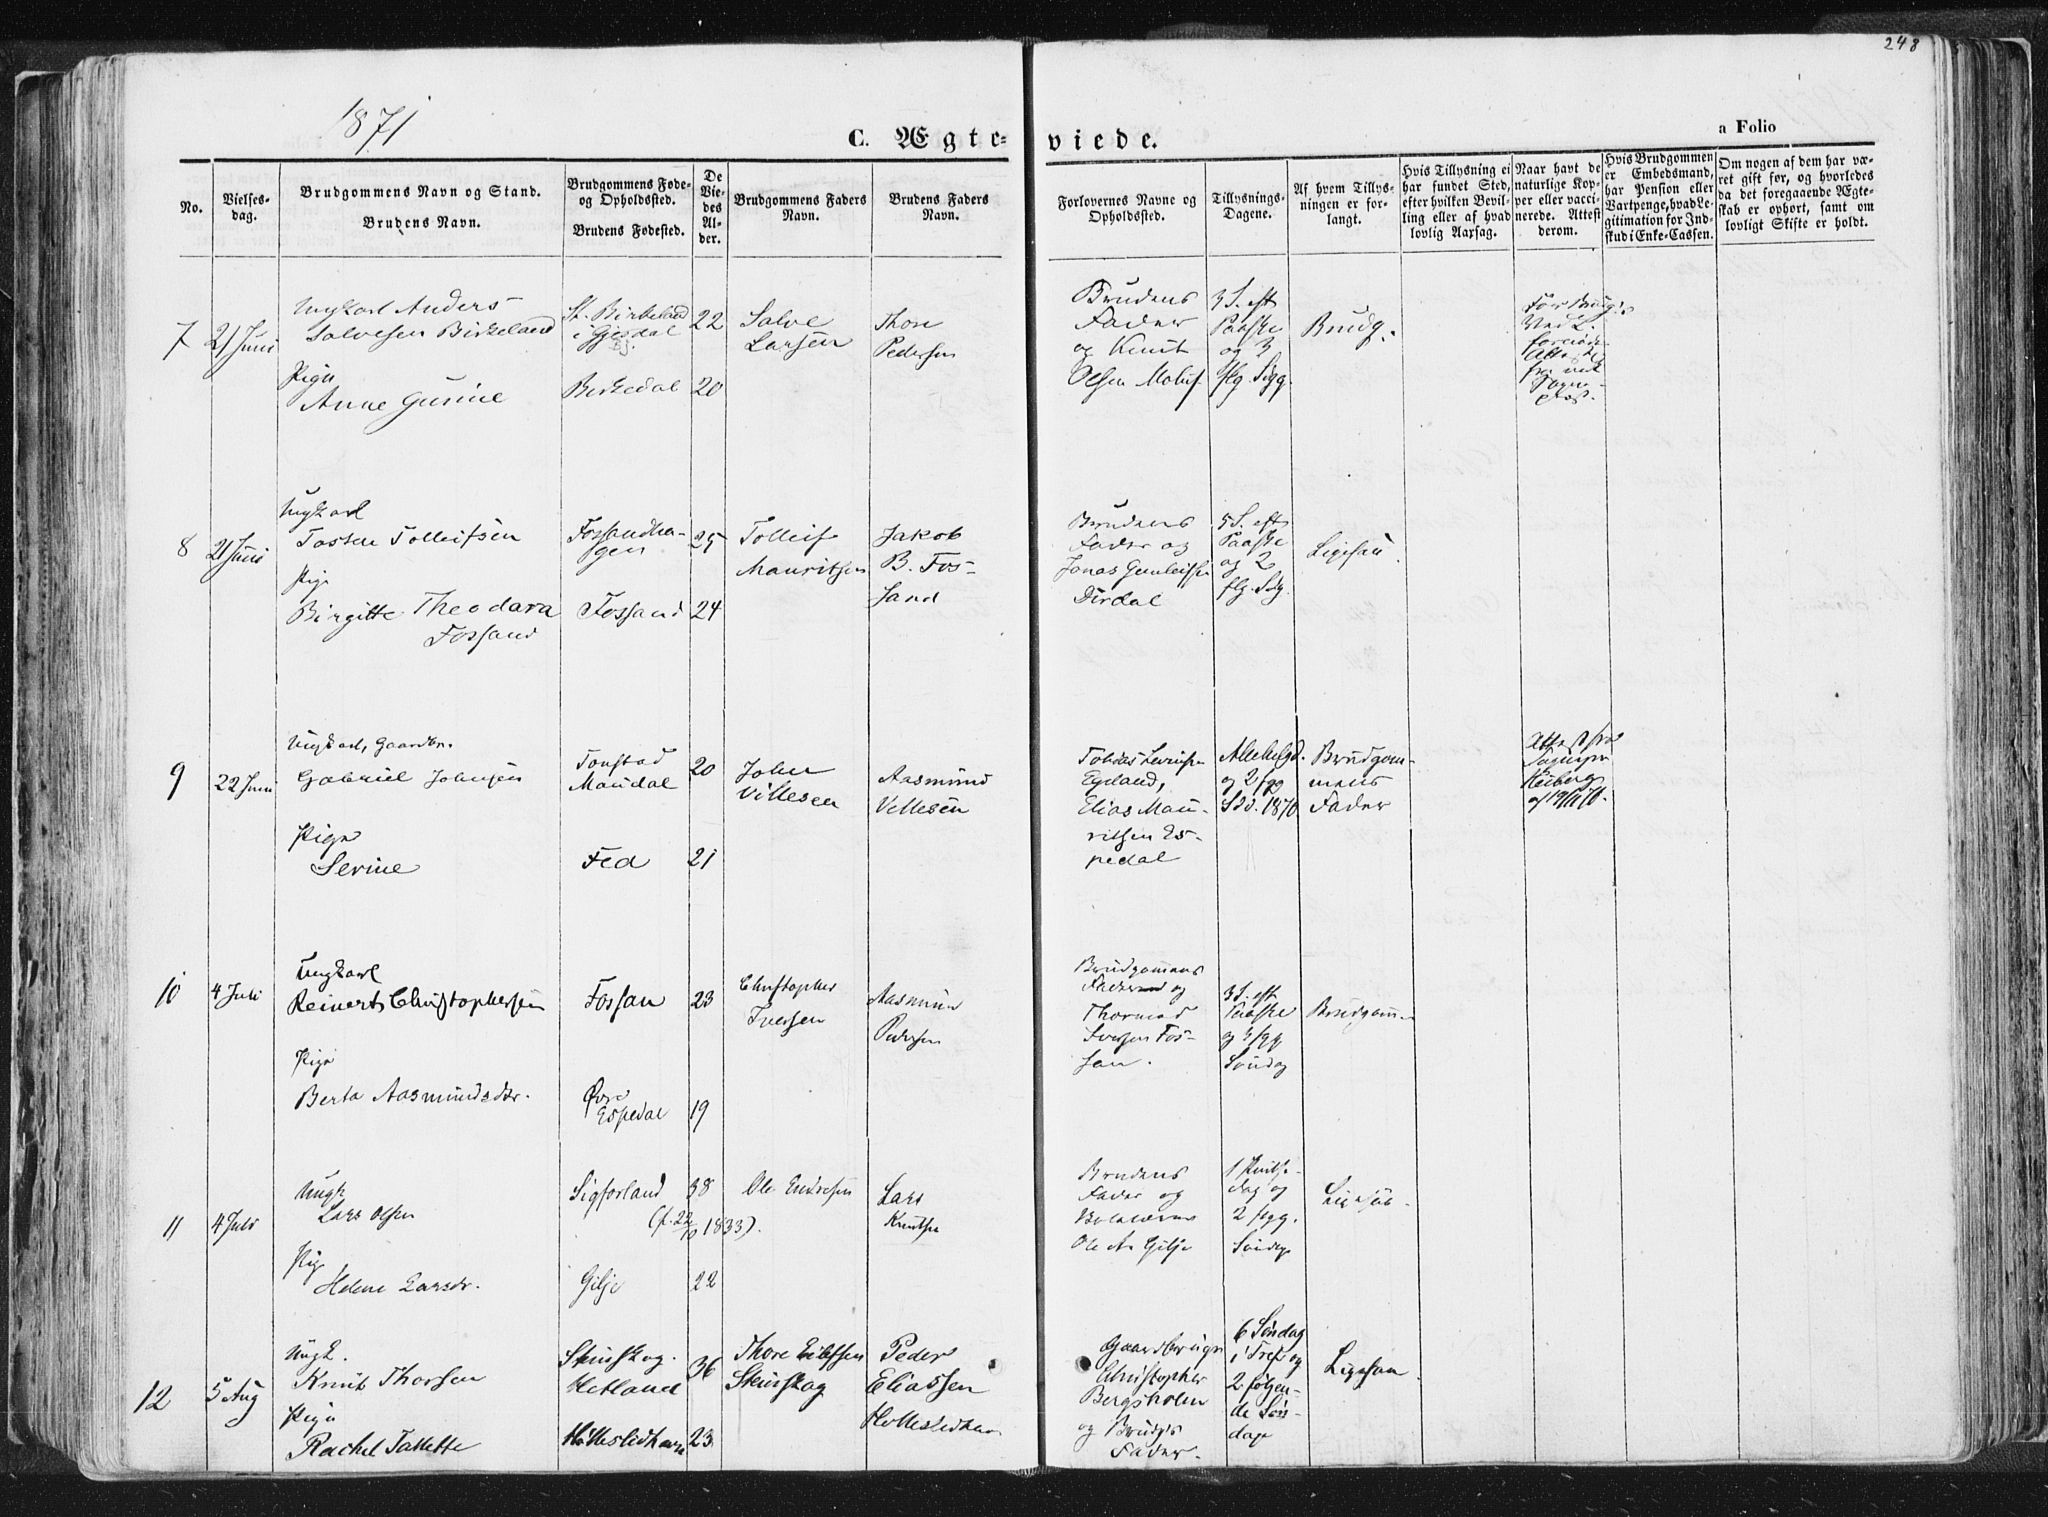 248
1871
C. Ægteviede.
a Folio
No.
Vielsesdag.
Brudgommens Navn og Stand.
Brudens Navn.
Brudgommens Føde- og Opholdssted.
Brudens Fødested.
De Viedes Alder.
Brudgommens Faders Navn.
Brudens Faders Navn.
Forlovernes Navne og Opholdssted.
Tillysnings-Dagene.
Af hvem Tillysningen er forlangt.
Hvis Tillysning ei har fundet Sted, efter hvilken Bevilling eller af hvad lovlig Aarsag.
Naar havt de naturlige Kopper eller vaccinerede. Attest derom.
Hvis Brudgommen er Embedsmand, har Pension eller Vartpenge, hvad Legitimation for Indskud i Enke-Cassen.
Om nogen af dem har været gift før, og hvorledes da det foregaaende Ægteskab er ophørt, samt om lovligt Skifte er holdt.
7
21 Juni
Ungkarl Anders
Salvesen Birkeland
Pige
Anne Gurine
St. Birkeland
i Gjesdal
Birkedal
22
20
Salve
Larsen
Thore
Pedersen
Brudens
Fader
og Knut
Olsen
3 S. eft
Paaske
og 3
flg. Sdg.
Brudg.
8
21 Juni
Ungkarl
Tosten Tolleifsen
Pige
Birgitte Theodara
Fossand
Fossandhagen
Fossand
25
24
Tolleif
Mauritsen
Jakob
B. Fossand
Brudens
Fader og
Jonas Gunleifsen
Dirdal
5 S. eft
Paaske
og 2
flg. Sdg.
Ligesaa.
9
22 Juni
Ungkarl, Gaardbr.
Gabriel Johnsen
Pige
Serine
Tonstad
Mandal
Fed
20
21
John
Villesen
Aasmund
Vellesen
Eyeland,
Elias Mauritsen Espedal
Allehelgd.
og 2 fgg
Sdd. 1870
Brudgommens
Fader
Attest fra
Sogнepr
Heiberg
af 19/11 70.
10
4 Juli
Ungkarl
Reinert Christophersen
Pige
Berta Aasmundsdtr.
Fossan
Øvre
Espedal
23
19
Christopher
Iversen
Aasmund
Pedersen
Brudgommens
Fader og
Thormod
Iversen Fossan.
3 S. eft
Paaske
og 4 fgg
Søndag
Brudgommen
11
4 Juli
Ungk
Lars Olsen
Pige
Helene Larsdr.
Sigforland
(f. 22/10 1833).
Gilje
38
22
Ole Endresen
Lars
Knutsen
Brudens
Fader og
Ole A. Gilje
1 Pintsedag og
2 fgg.
Søndage
12
5 Aug
Ungk.
Knut Thorsen
Pige
Rachel Tallette
Stenskog.
Hetland
Hølleslidhavn
36
23
Thore Eilefsen
Stenskog
Peder
Eliassen
Hølleslidhavn
Gaardbruger
Christopher
Bergsholm
og Brudgs
Fader.
6 Søndag
i Tref og
2 følgende Søndage
Ligesaa.